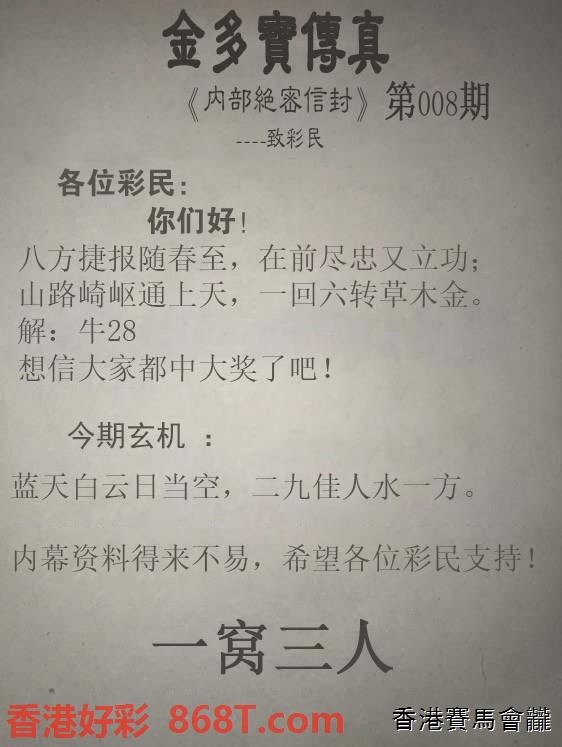 金多寶傳真
《内部絶密信封》第008期
----致彩民
各位彩民:
你们好!
八方捷报随春至，在前尽忠又立功；
山路崎岖通上天，一回六转草木金。
解：牛28
想信大家都中大奖了吧！
今期玄机 ：
蓝天白云日当空，二九佳人水一方。
内幕资料得来不易，希望各位彩民支持！
一窝三人
香港好彩 868T.com
香港賽馬會